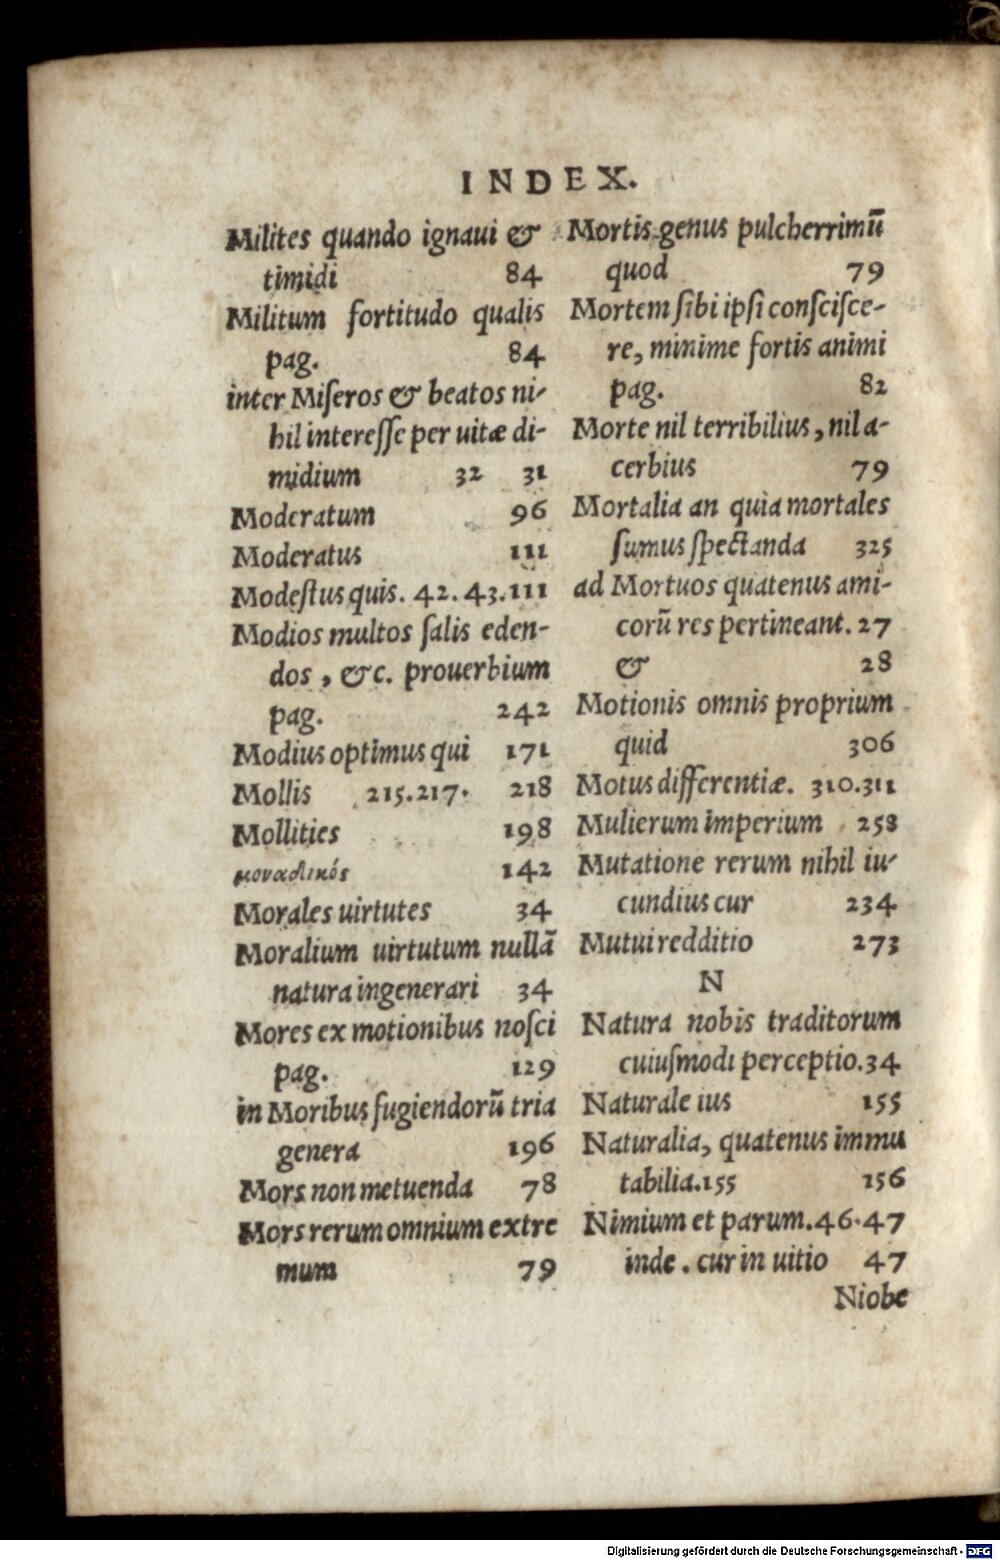 INDEX.
Milites quando ignaui &
timidi 84
Militum fortitudo qualis
pag. 84
inter Miſeros & beatos ni-
hil intereſſe per uitæ di-
midium 32 31
Moderatum 96
Moderatus 111
Modeſtus quis. 42. 43. 111
Modios multos ſalis eden-
dos, &c. prouerbium
pag. 242
Modius optimus qui 171
Mollis 215. 217. 218
Mollities 198
μοναδικός 142
Morales uirtutes 34
Moralium uirtutum nullā
natura ingenerari 34
Mores ex motionibus noſci
pag. 129
in Moribus fugiendorū tria
genera 196
Mors non metuenda 78
Mors rerum omnium extre
mum 79
Mortis genus pulcherrimū
quod 79
Mortem ſibi ipſi conſciſce-
re, minime fortis animi
pag. 82
Morte nil terribilius, nil a-
cerbius 79
Mortalia an quia mortales
ſumus ſpectanda 325
ad Mortuos quatenus ami-
corū res pertineant. 27
& 28
Motionis omnis proprium
quid 306
Motus differentiæ. 310. 311
Mulierum imperium 258
Mutatione rerum nihil iu-
cundius cur 234
Mutui redditio 273
N
Natura nobis traditorum
cuiuſmodi perceptio. 34
Naturale ius 155
Naturalia, quatenus immu
tabilia. 155 156
Nimium et parum. 46. 47
inde. cur in uitio 47
Niobe
Digitalisierung gefördert durch die Deutsche Forschungsgemeinschaft - DFG